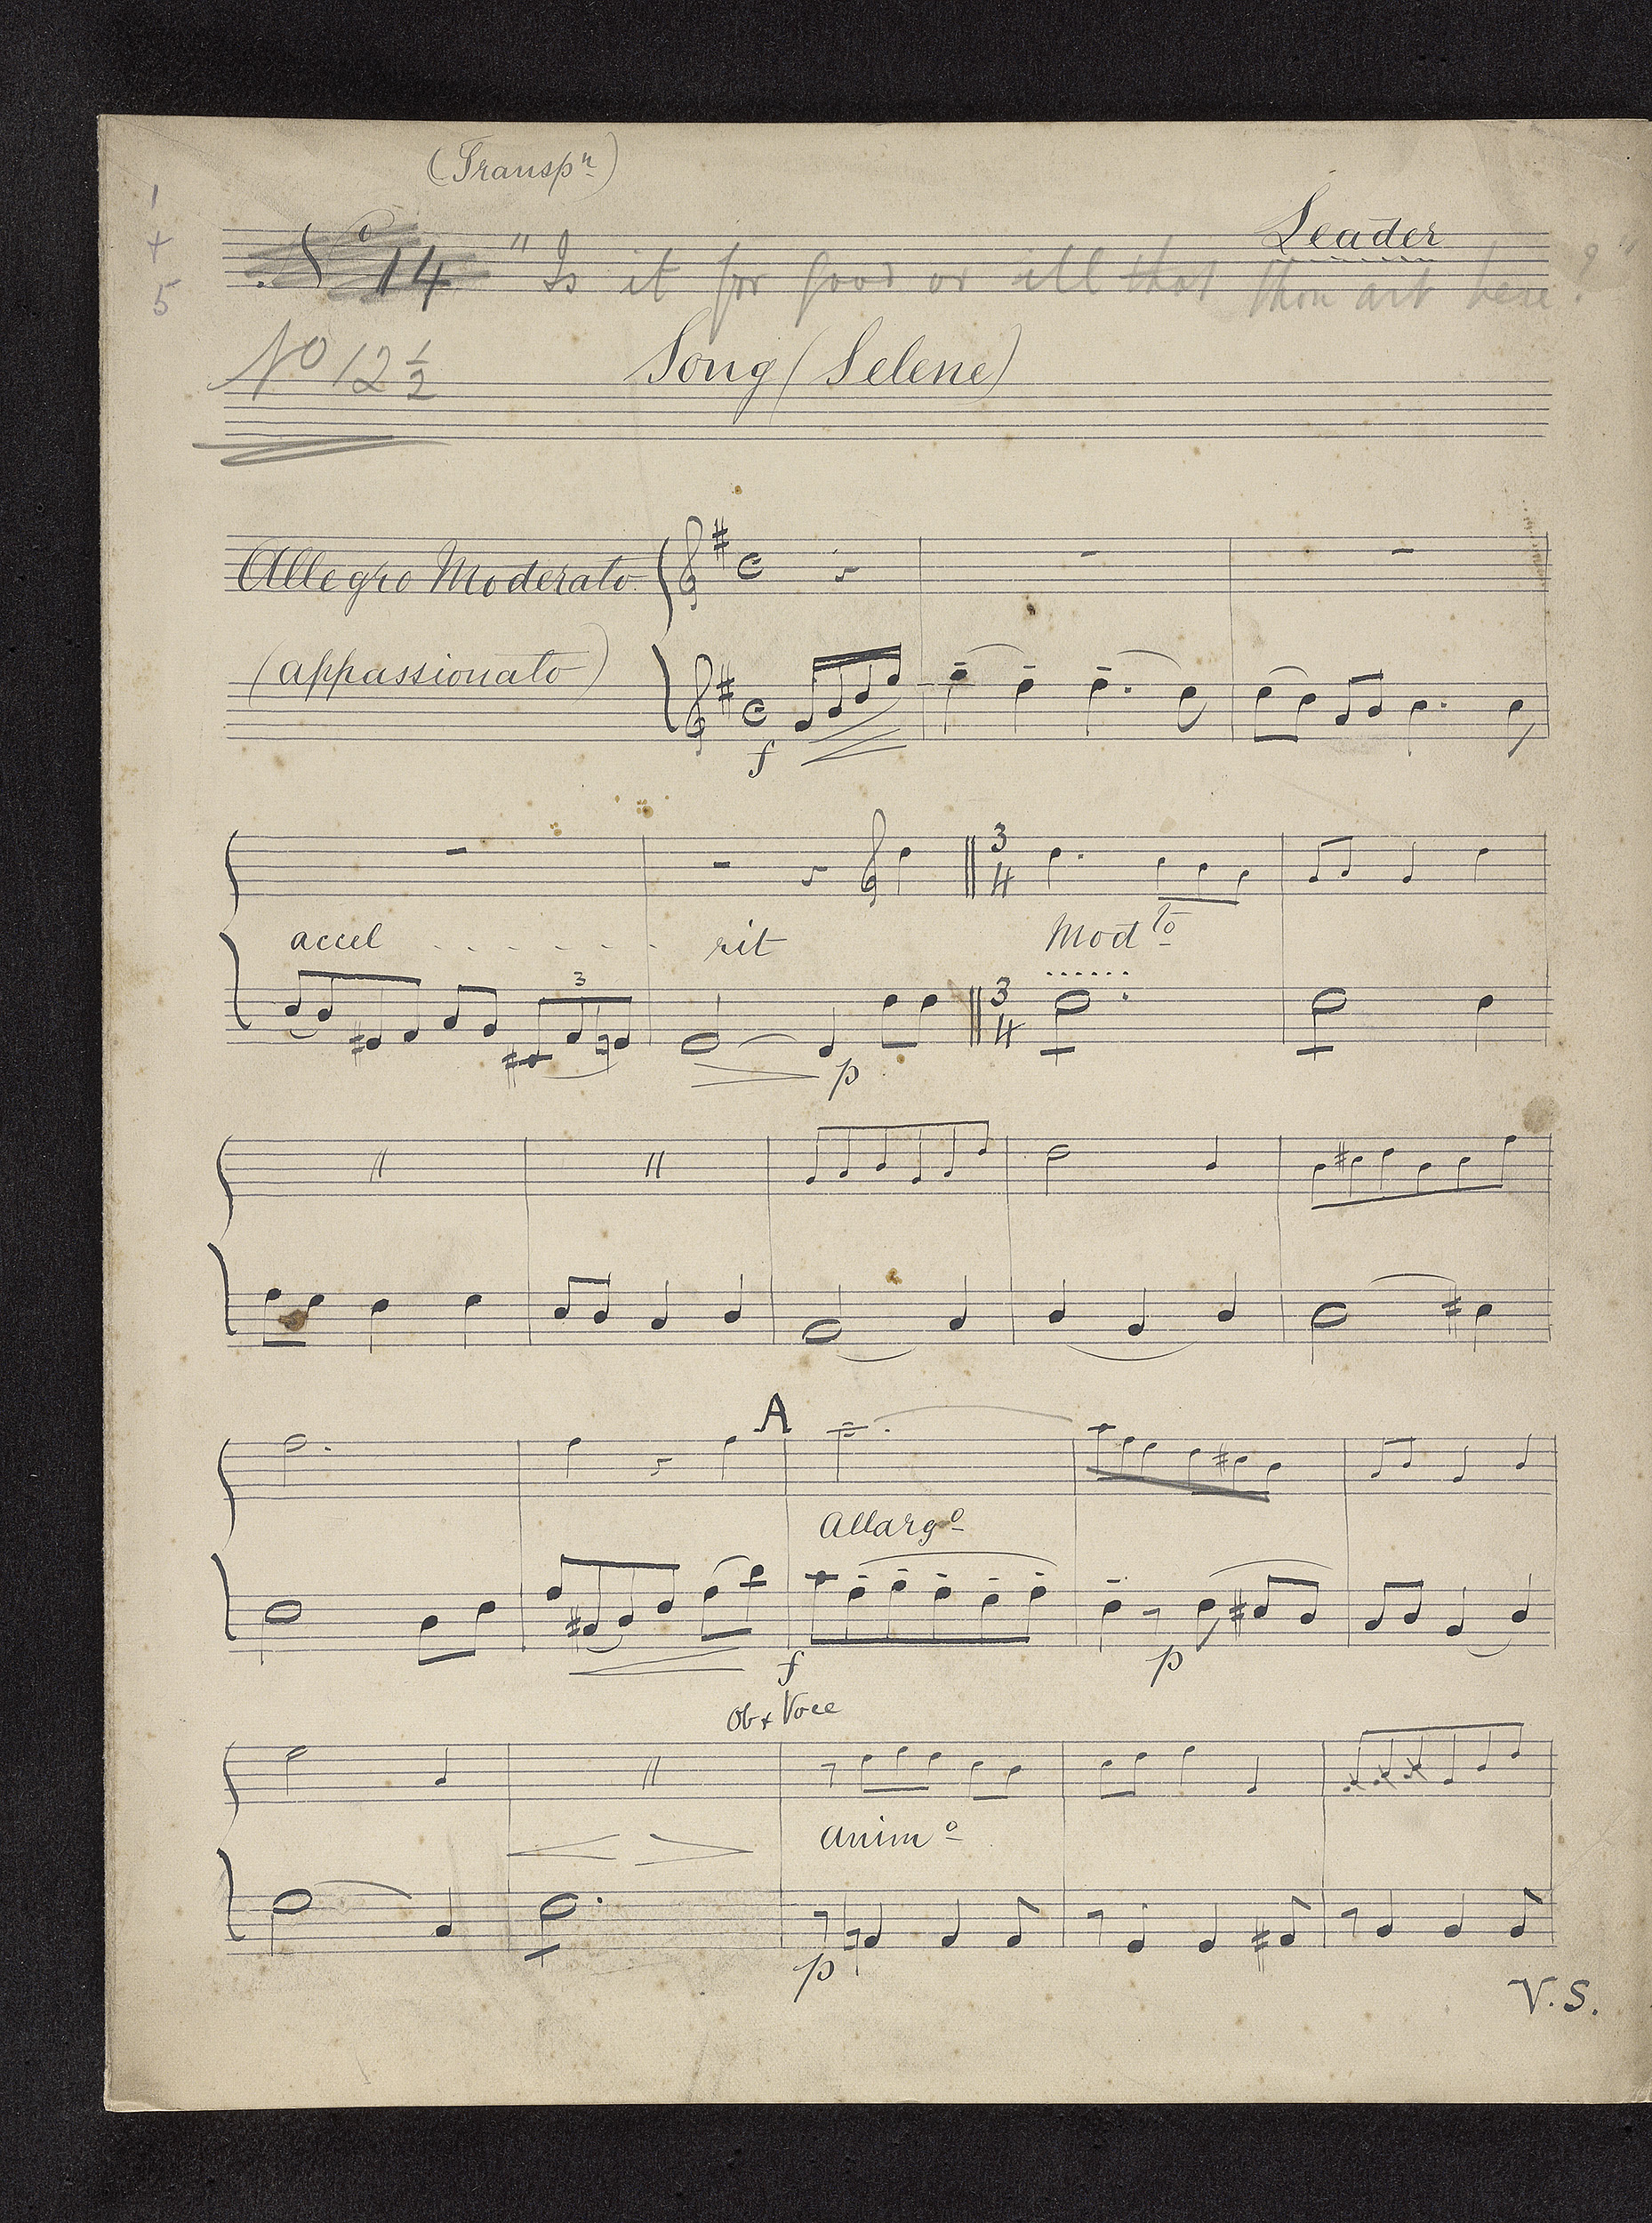 (Transpn)
1
+
5
Leader
14 "Is it for good or ill that thou art here?"
No 12 1/2
Song (Selene)
Allegro Moderato
(appassionato)
f
accel rit Modto
3
4
3
3
4
p
A
Allargo
f p
Ob + Voce
animo
p
V.S.